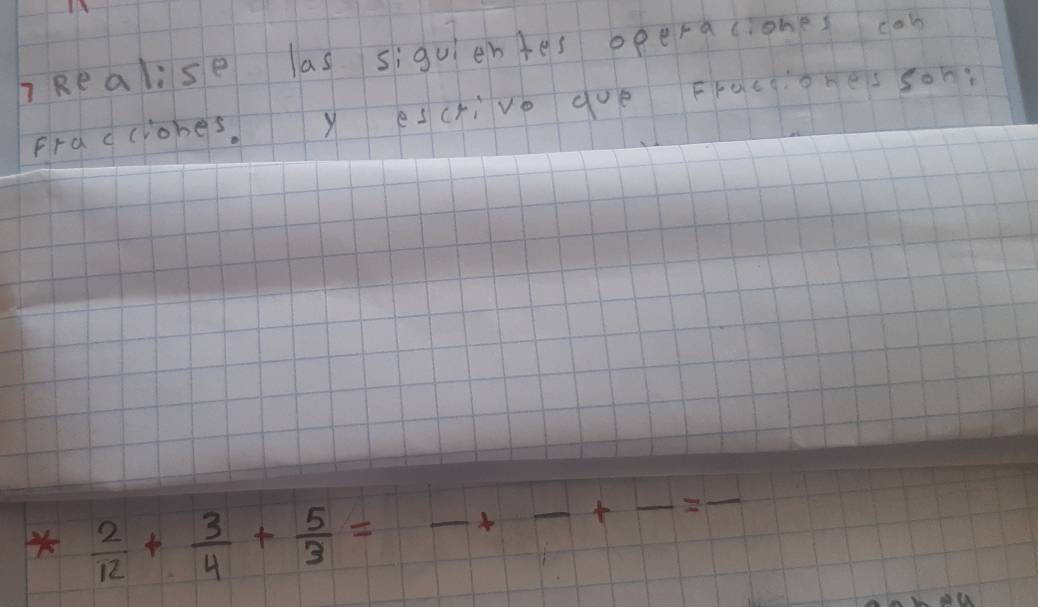 7 Realise las siguientes operaciones con
Fracciones. y escrivo que Fracciones son:
* 2/12 + 3/4 + 5/3 = — + — + — = —